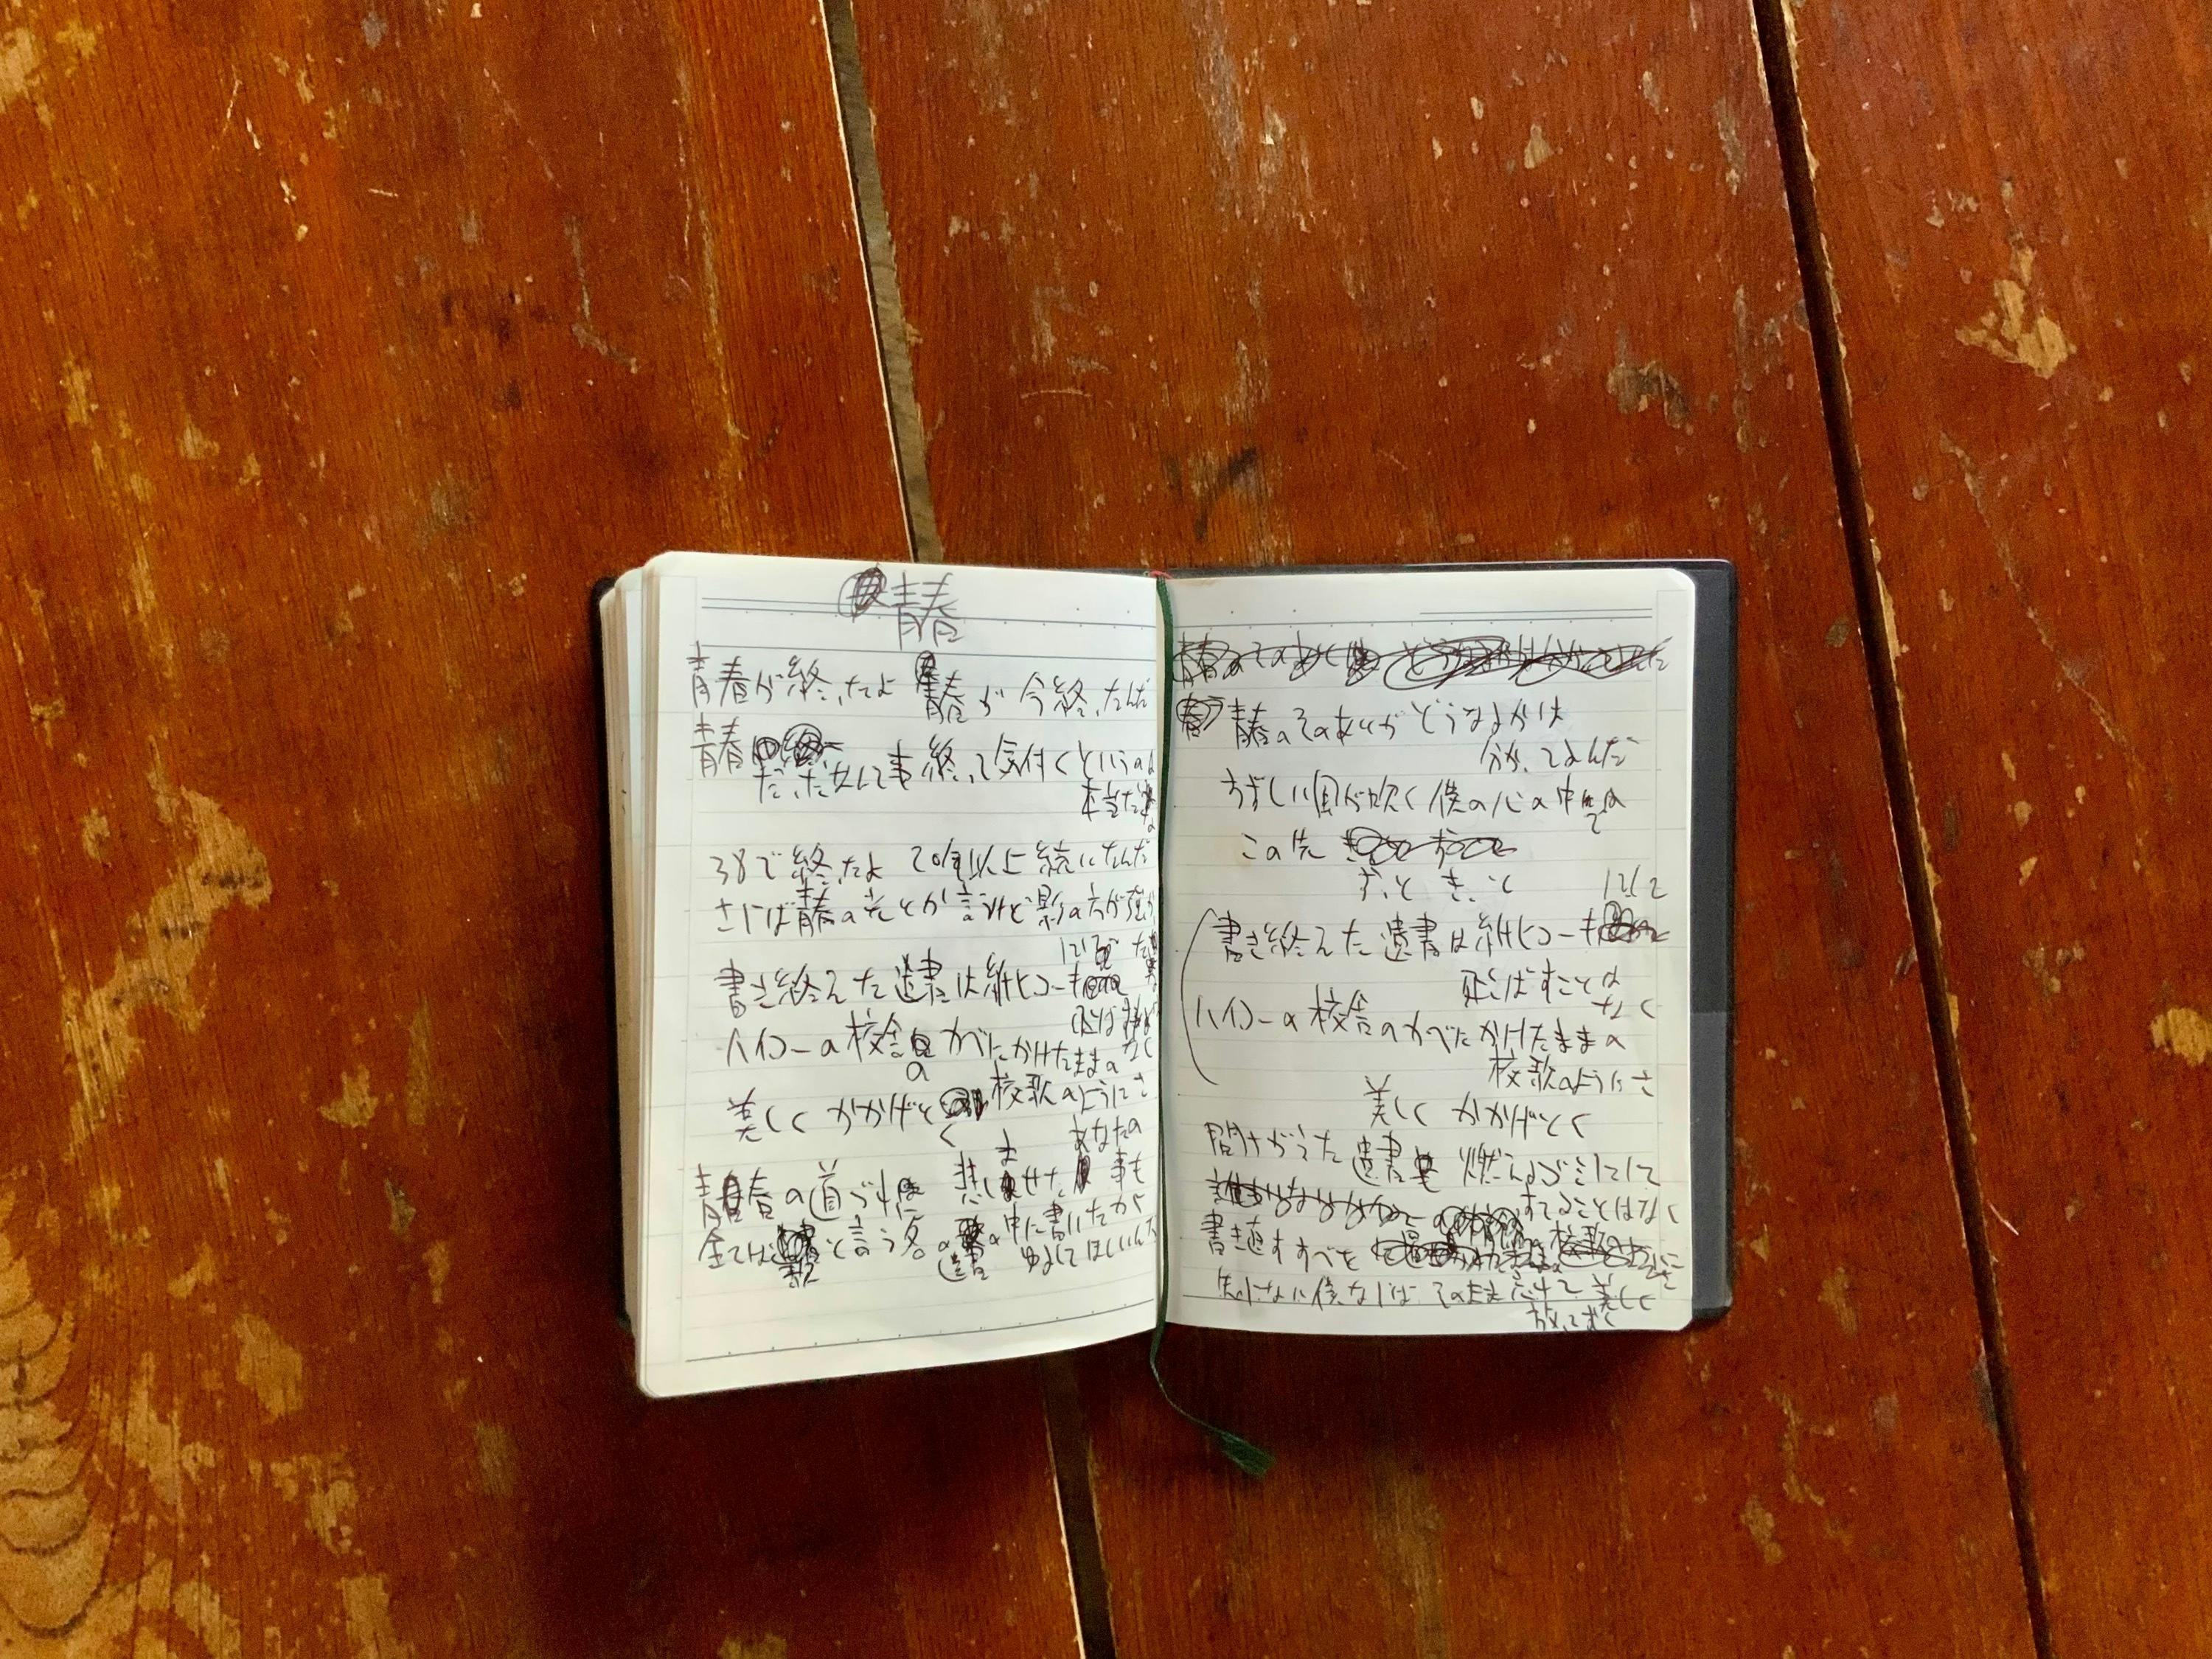 青春
青春が終ったよ 青春が今終ったんだ
青春
だったなんて事終って気付くというのは
本当だな
38で終ったよ 20年以上続いたんだ
さらば青春の光とか言うけど影の方が強か
った
書き終えた遺書は紙ヒコーキ
にして
飛ばす事は
なく
ハイコーの校舎のかべにかけたままの
校歌のようにさ
美しくかかげとく
青春の道づれに 悲しませた
あなたの
事も
全ては と言う名の遺書の中に書いたから
ゆるしてほしいんだ
青春のそのあとがどうなるかは
分かってるんだ
すずしい風が吹く僕の心の中で
この先
ずっと きっと
書き終えた遺書は紙ヒコーキ
にして
飛ばすことは
なく
ハイコーの校舎のかべにかけたままの
校歌のようにさ
美しくかかげとく
間ちがえた遺書も 燃えるゴミにして
すてることはなく
書き直すすべを
知らない僕ならば そのまま忘れて 美しく
放っておく